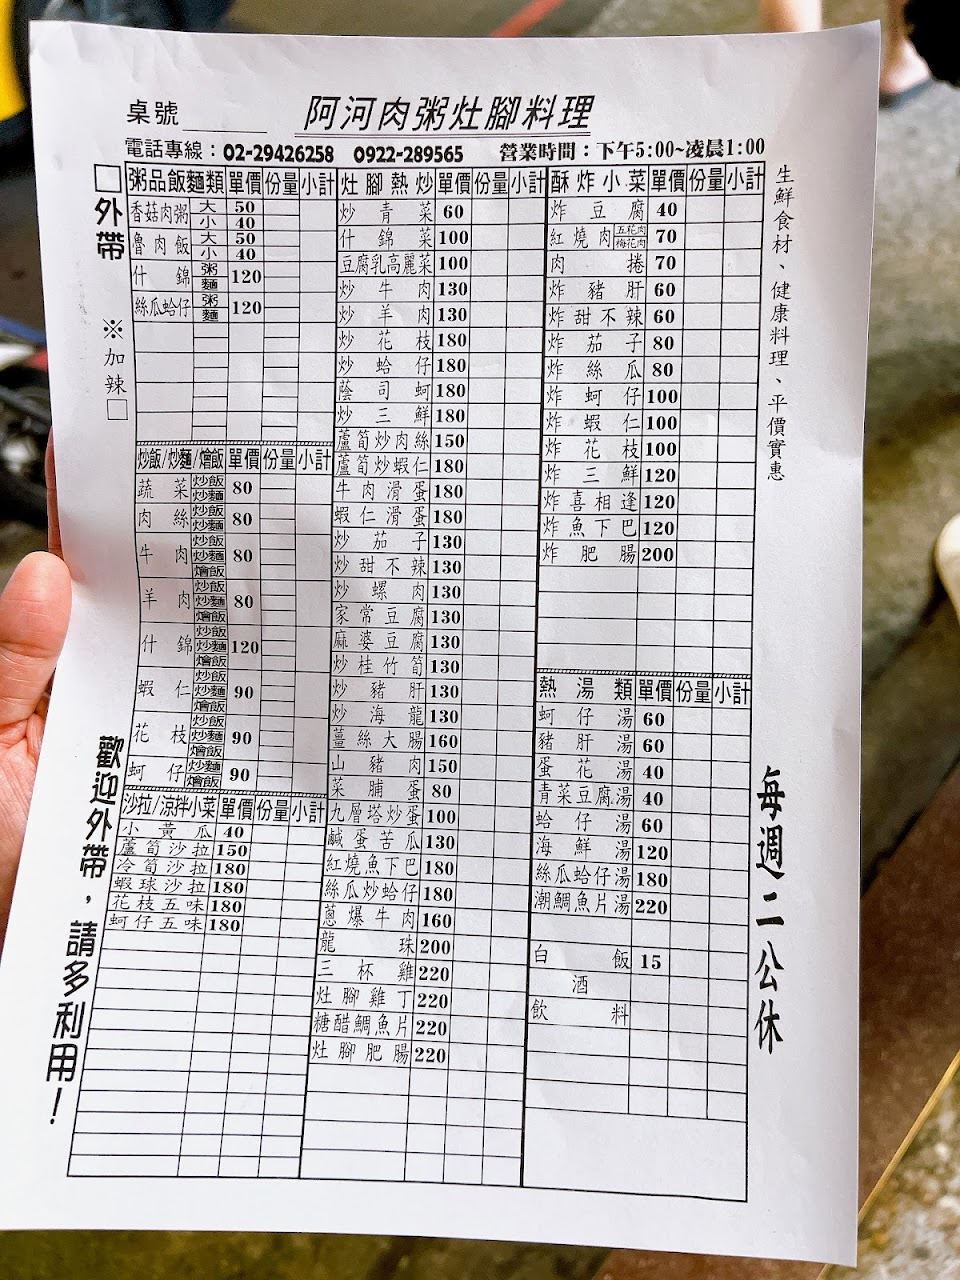 桌號
阿河肉粥灶腳料理
電話專線：02-29426258 0922-289565 營業時間：下午5:00~凌晨1:00
外帶
※加辣
歡迎外帶，請多利用！
粥品飯麵類 單價 份量 小計
香菇肉粥 大 50
小 40
魯肉飯 大 50
小 40
什錦 粥 麵 120
絲瓜蛤仔 粥 麵 120
炒飯/炒麵/燴飯 單價 份量 小計
蔬菜 炒飯 炒麵 80
肉絲 炒飯 炒麵 80
牛肉 炒飯 炒麵 燴飯 80
羊肉 炒飯 炒麵 燴飯 80
什錦 炒飯 炒麵 燴飯 120
蝦仁 炒飯 炒麵 燴飯 90
花枝 炒飯 炒麵 燴飯 90
蚵仔 炒麵 燴飯 90
沙拉/涼拌小菜 單價 份量 小計
小黃瓜 40
蘆筍沙拉 150
冷筍沙拉 180
蝦球沙拉 180
花枝五味 180
蚵仔五味 180
灶腳熱炒 單價 份量 小計
炒青菜 60
什錦菜 100
豆腐乳高麗菜 100
炒牛肉 130
炒羊肉 130
炒花枝 180
炒蛤仔 180
蔭司蚵 180
炒三鮮 180
蘆筍炒肉絲 150
蘆筍炒蝦仁 180
牛肉滑蛋 180
蝦仁滑蛋 180
炒茄子 130
炒甜不辣 130
炒螺肉 130
家常豆腐 130
麻婆豆腐 130
炒桂竹筍 130
炒豬肝 130
炒海龍 130
薑絲大腸 160
山豬肉 150
菜脯蛋 80
九層塔炒蛋 100
鹹蛋苦瓜 130
紅燒魚下巴 180
絲瓜炒蛤仔 180
蔥爆牛肉 160
龍珠 200
三杯雞 220
灶腳雞丁 220
糖醋鯛魚片 220
灶腳肥腸 220
酥炸小菜 單價 份量 小計
炸豆腐 40
紅燒肉 五花肉 梅花肉 70
肉捲 70
炸豬肝 60
炸甜不辣 60
炸茄子 80
炸絲瓜 80
炸蚵仔 100
炸蝦仁 100
炸花枝 100
炸三鮮 120
炸喜相逢 120
炸魚下巴 120
炸肥腸 200
熱湯類 單價 份量 小計
蚵仔湯 60
豬肝湯 60
蛋花湯 40
青菜豆腐湯 40
蛤仔湯 60
海鮮湯 120
絲瓜蛤仔湯 180
潮鯛魚片湯 220
白飯 15
酒
飲料
生鮮食材、健康料理、平價實惠
每週二公休